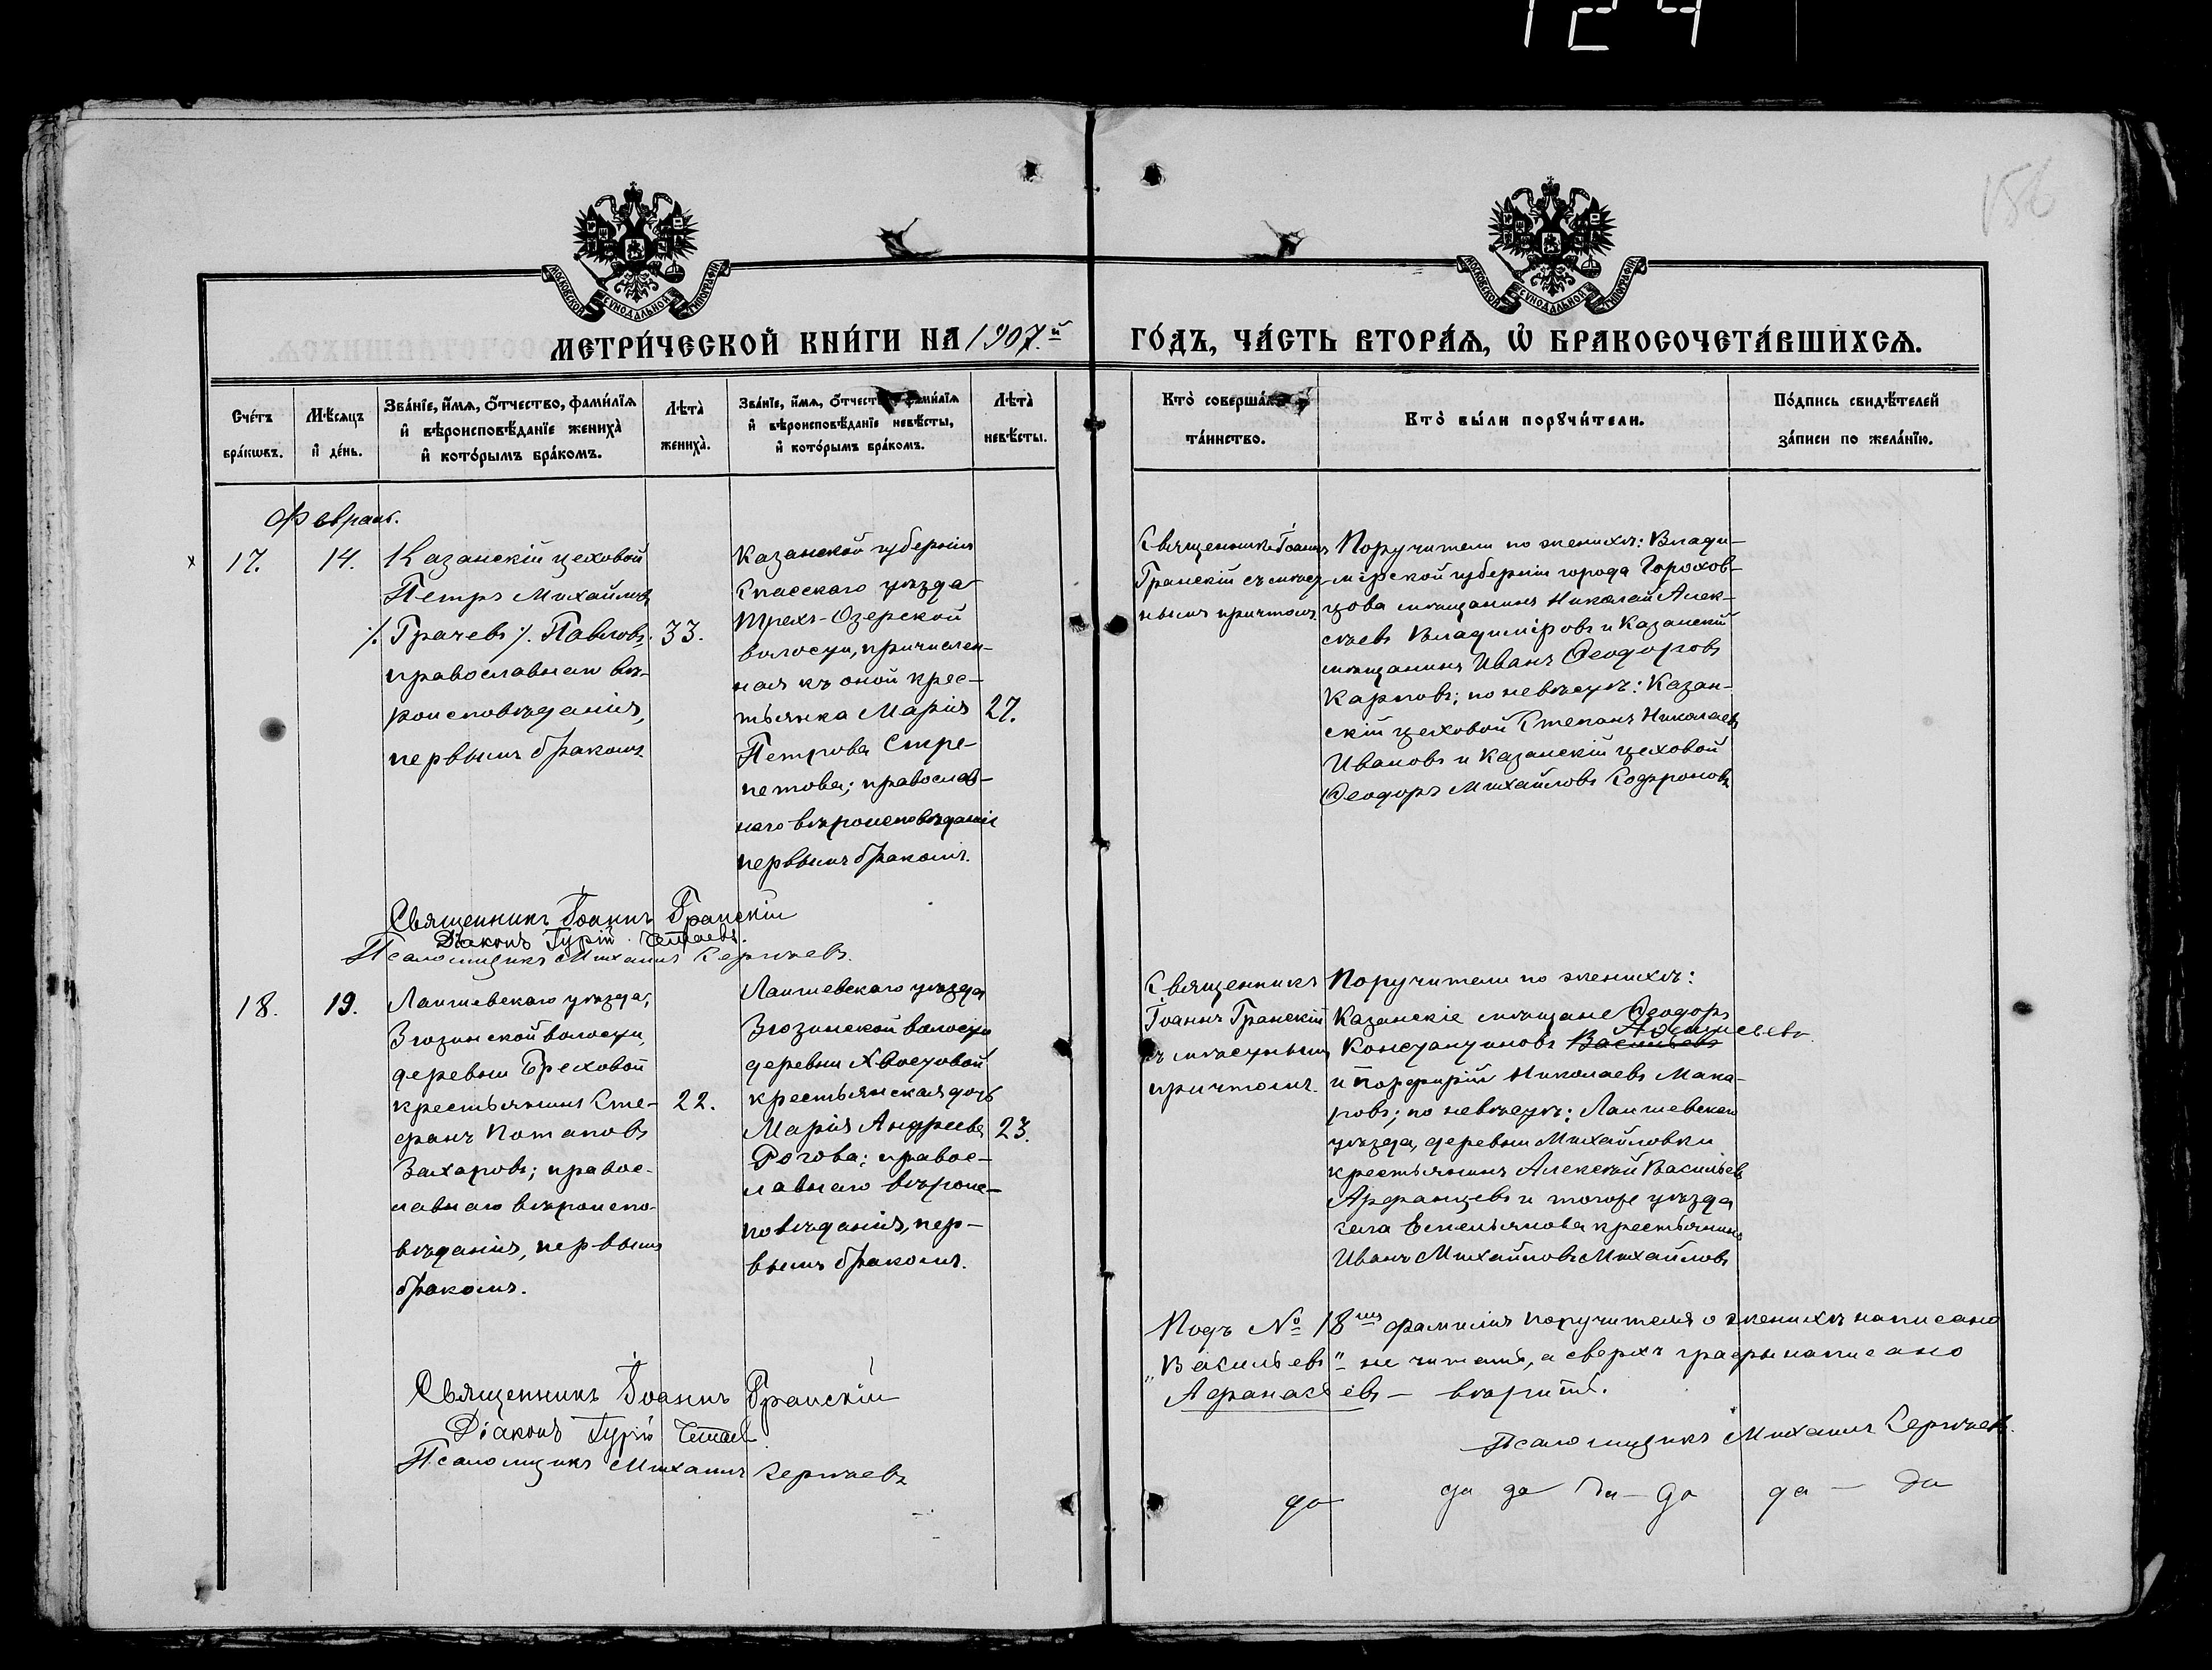 124
156
МОСКОВСКОЙ СѴНОДАЛЬНОЙ ТИПОГРАФІИ
МОСКОВСКОЙ СѴНОДАЛЬНОЙ ТИПОГРАФІИ
МЕТРИ́ЧЕСКОЙ КНИ́ГИ НА 1907.й ГО́ДЪ, ЧА́СТЬ ВТОРА́Ѧ, Ѽ БРАКОСОЧЕТА́ВШИХСѦ.
Сче́тъ
бра́кѡвъ.
Мѣ́сѧцъ
и҆ де́нь.
Зва́нїе, и҆́мѧ, ѻ҆́тчество, фами́лїѧ
и҆ вѣроисповѣ́данїе жениха̀
и҆ кото́рымъ бра́комъ.
Лѣта̀
жениха̀.
Зва́нїе, и҆́мѧ, ѻ҆́тчество, фами́лїѧ
и҆ вѣроисповѣ́данїе невѣ́сты,
и҆ кото́рымъ бра́комъ.
Лѣта̀
невѣ́сты.
Кто̀ соверша́лъ
та́инство.
Кто̀ бы́ли порꙋчи́тели.
По́дпись свидѣ́телей
за́писи по жела́нїю.
Февраль.
х 17.
14.
Казанскій цеховой
Петръ Михайловъ
⁒ Грачевъ ⁒ Павловъ,
православнаго вѣ-
роисповѣданія,
первымъ бракомъ
33.
Казанской губерніи
Спасскаго уѣзда
Трехъ-Озерской
волости, причислен-
ная къ оной крес-
тьянка Марія
Петрова Стре-
петова; православ-
наго вѣроисповѣданія
первымъ бракомъ.
27.
Священникъ Іоаннъ
Гранскій съ мѣст-
нымъ причтомъ.
Поручители по женихѣ: Влади-
мірской губерніи города Горохов-
цова мѣщанинъ Николай Алек-
сѣевъ Владиміровъ и Казанскій
мѣщанинъ Иванъ Ѳеодоровъ
Карповъ; по невѣстѣ: Казан-
скій цеховой Степанъ Николаевъ
Ивановъ и Казанскій цеховой
Ѳеодоръ Михайловъ Софроновъ
Священникъ Іоаннъ Гранскій
Діаконъ Гурій
Псаломщикъ Михаилъ Сергѣевъ.
18.
19.
Лаишевскаго уѣзда,
Зюзинской волости,
деревни Ореховой
крестьянинъ Сте-
фанъ Потаповъ
Захаровъ; правос-
лавнаго вѣроиспо-
вѣданія, первымъ
бракомъ.
22.
Лаишевскаго уѣзда
Зюзинской волости
деревни Хвостовой
крестьянская дочь
Марія Андреева
Рогова; правос-
лавнаго вѣроис-
повѣданія, пер-
вымъ бракомъ.
23.
Священникъ
Іоаннъ Гранскій
съ мѣстнымъ
причтомъ.
Поручители по женихѣ:
Казанскіе мѣщане Ѳеодоръ
Афанасьевъ.
Константиновъ Васильевъ
и Порфирій Николаевъ Мака-
ровъ; по невѣстѣ: Лаишевскаго
уѣзда, деревни Михайловки
крестьянинъ Алексѣй Васильевъ
Арфанцевъ и тогоже уѣзда
села Емельянова крестьянинъ
Иванъ Михайловъ Михайловъ
Священникъ Іоаннъ Гранскій
Діаконъ Гурій
Псаломщикъ Михаилъ Сергѣевъ
Подъ № 18мъ фамилія поручителя о женихѣ написано
„Васильевъ" — не читать, а сверхъ графы написано
Афанасьевъ — вѣрить.
Псаломщикъ Михаилъ Сергѣевъ.
да да да да — да да — да